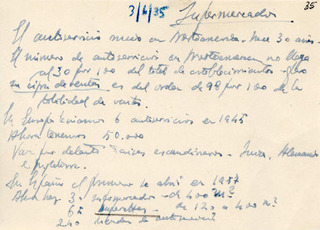 35
3/6/35
Supermercados
El autoservicio nació en Norteamérica hace 30 años.
El número de autoservicios en Norteamerica no llega
al 30 por 100 del total de establecimientos - Pero
su cifra de ventas es del orden de 98 por 100 de la
totalidad de ventas.
En Europa teníamos 6 autoservicios en 1945
Ahora tenemos 50.000
Van por delante Países escandinavos - Suiza, Alemania
e Inglaterra.
En España el primero se abrió en 1957
Ahora hay 3 supermercados - de 400 m²
65 superettes - de 120 a 400 m²
240 tiendas de autoservicio